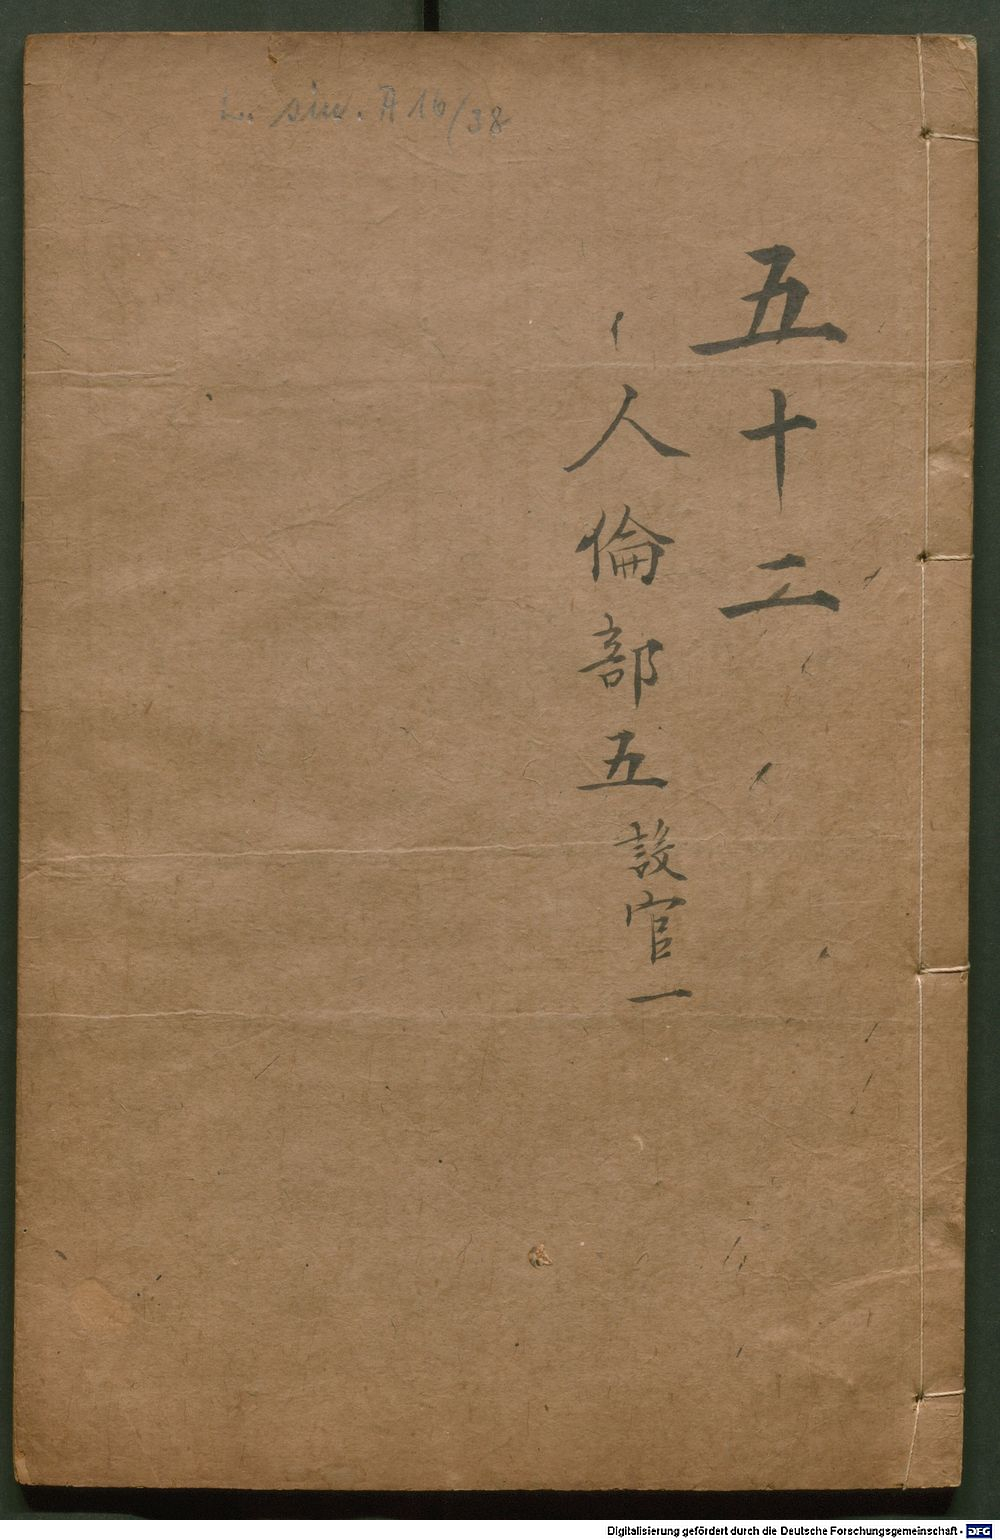 L. sin. A 16/38
五十二
人倫部五 設官一
Digitalisierung gefördert durch die Deutsche Forschungsgemeinschaft - DFG